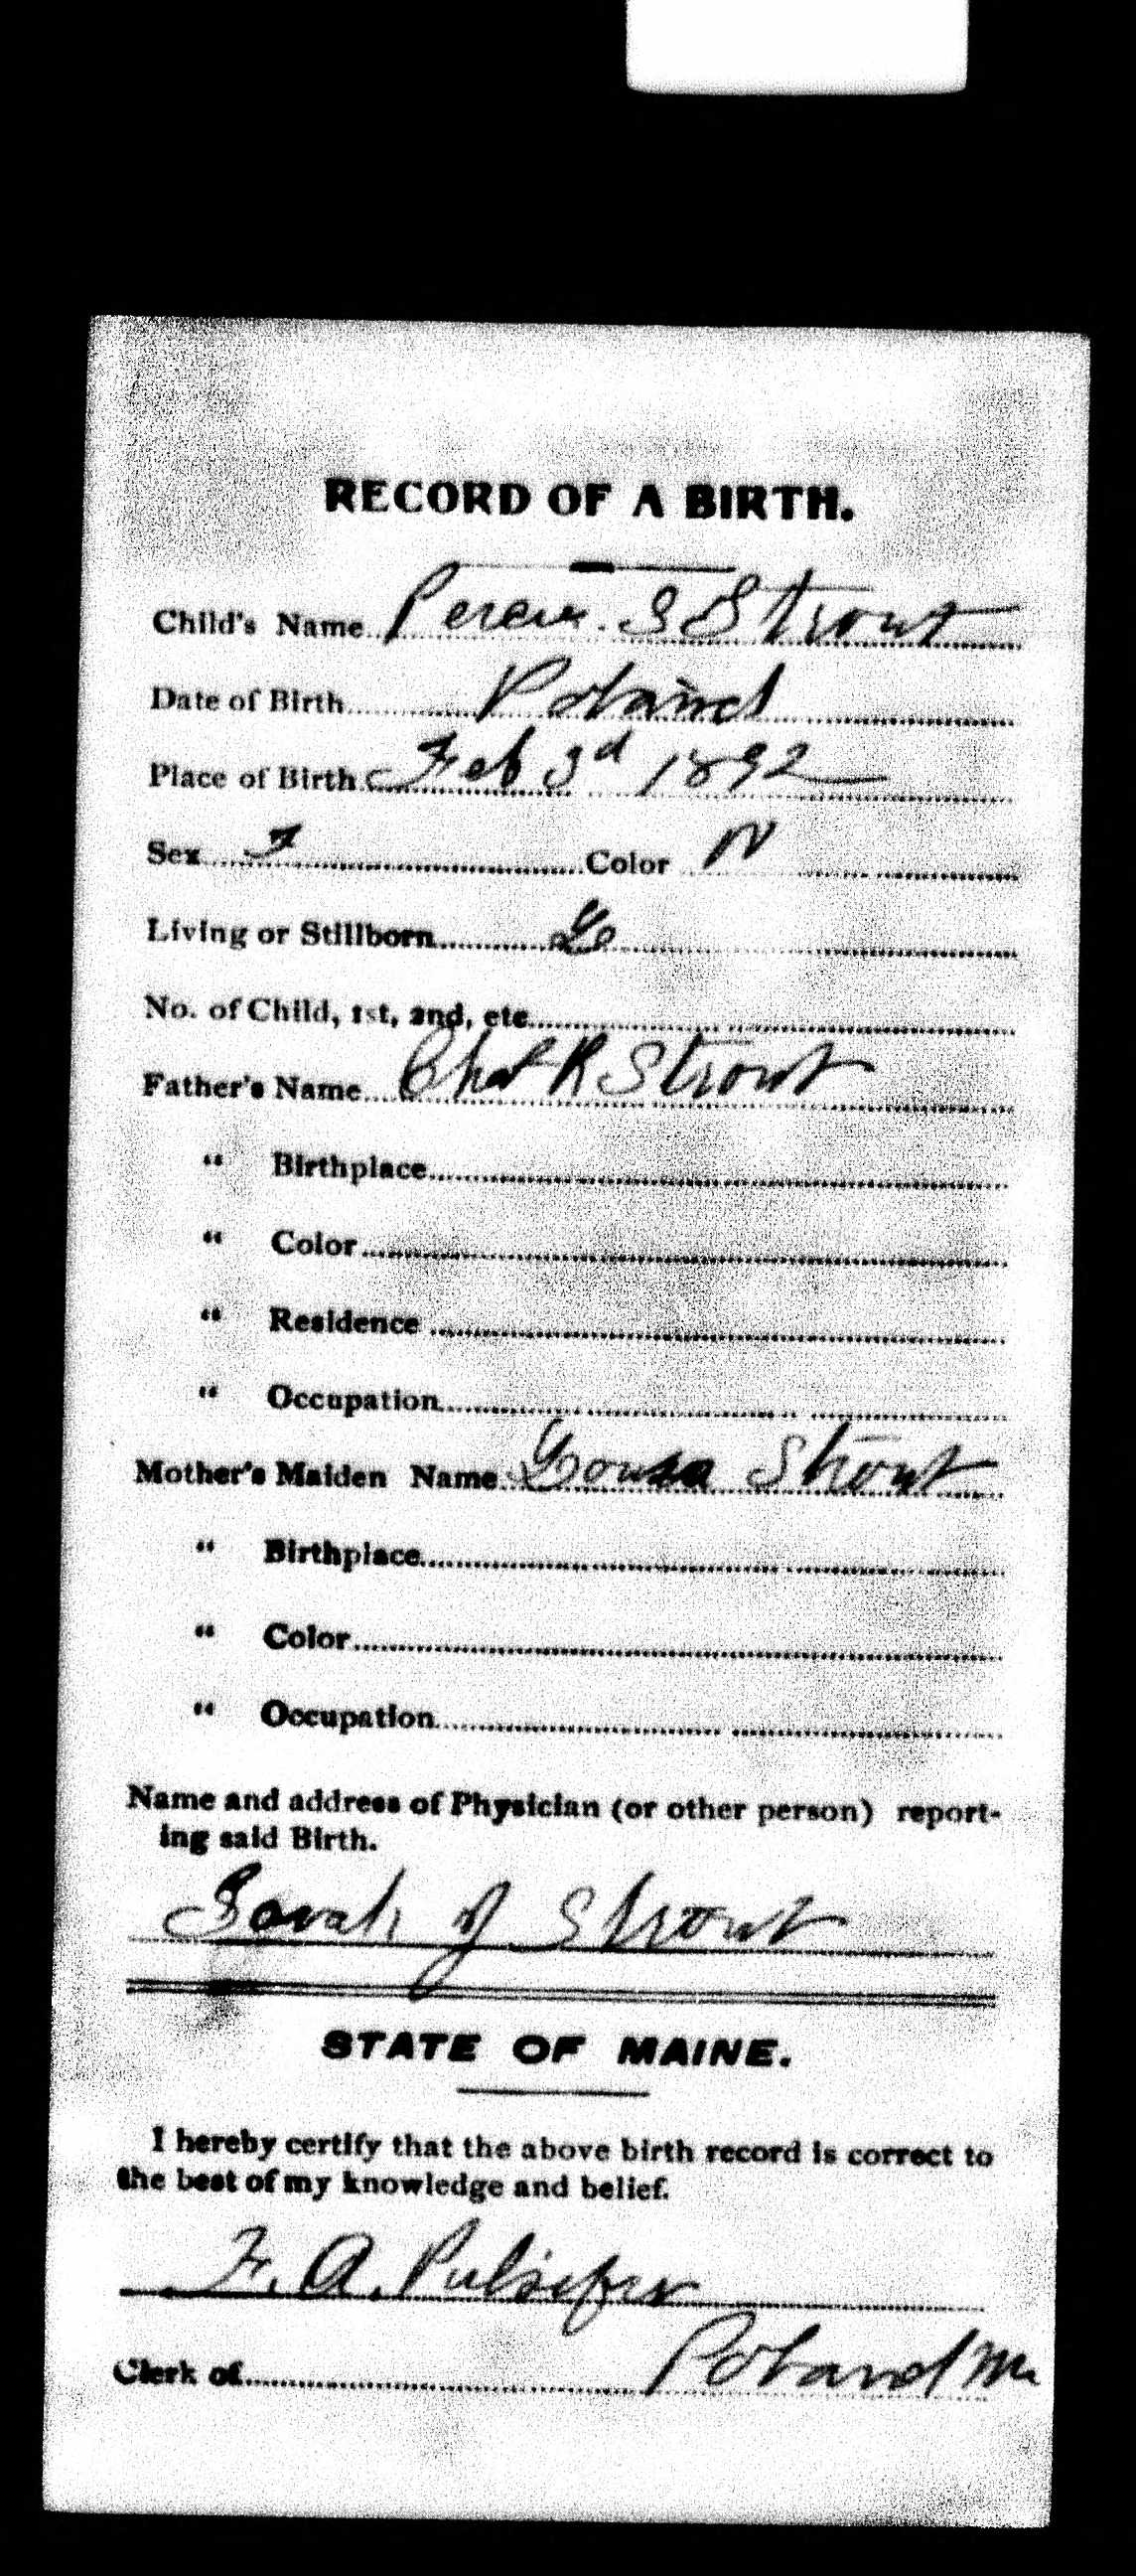 RECORD OF A BIRTH.
Child's Name S Strout
Date of Birth Poland
Place of Birth Feb 3d 1892
Sex F Color W
Living or Stillborn L
No. of Child, 1st, 2nd, etc.
Father's Name Chas R Strout
" Birthplace
" Color
" Residence
" Occupation
Mother's Maiden Name Louisa Strout
" Birthplace
" Color
" Occupation
Name and address of Physician (or other person) report-
ing said Birth.
Sarah J Strout
STATE OF MAINE.
I hereby certify that the above birth record is correct to
the best of my knowledge and belief.
F. A. Pulsifer
Clerk of Poland Me